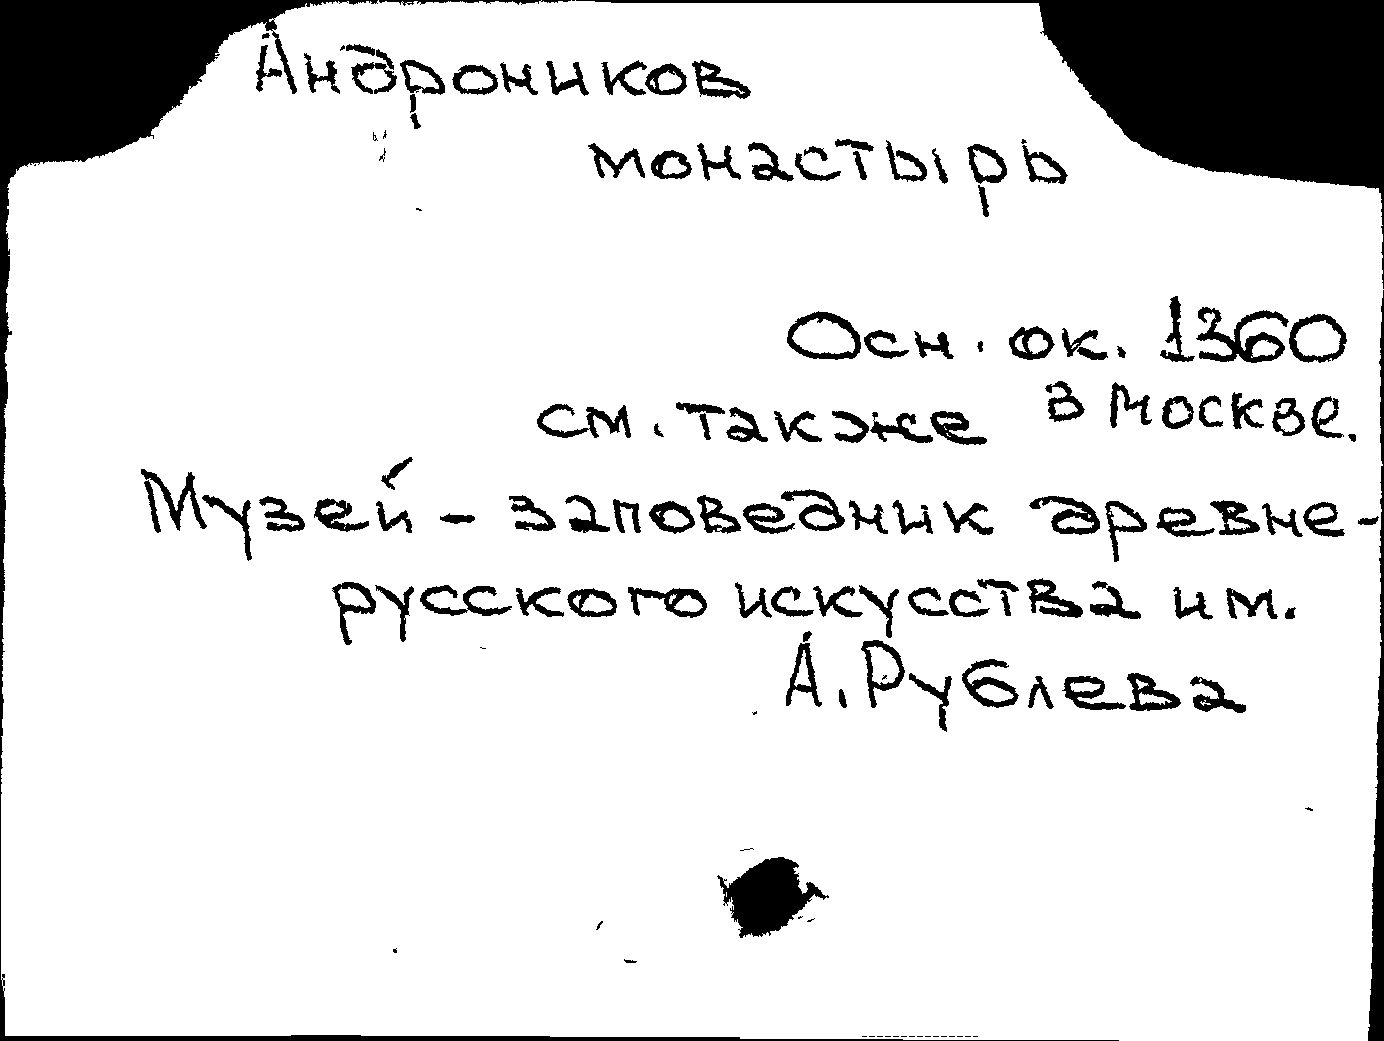 Андроников
монастырь
Осн. ок. 1360
в Москве.
см. также
Музей - заповедник древне-
русского искусства им.
А. Рублева